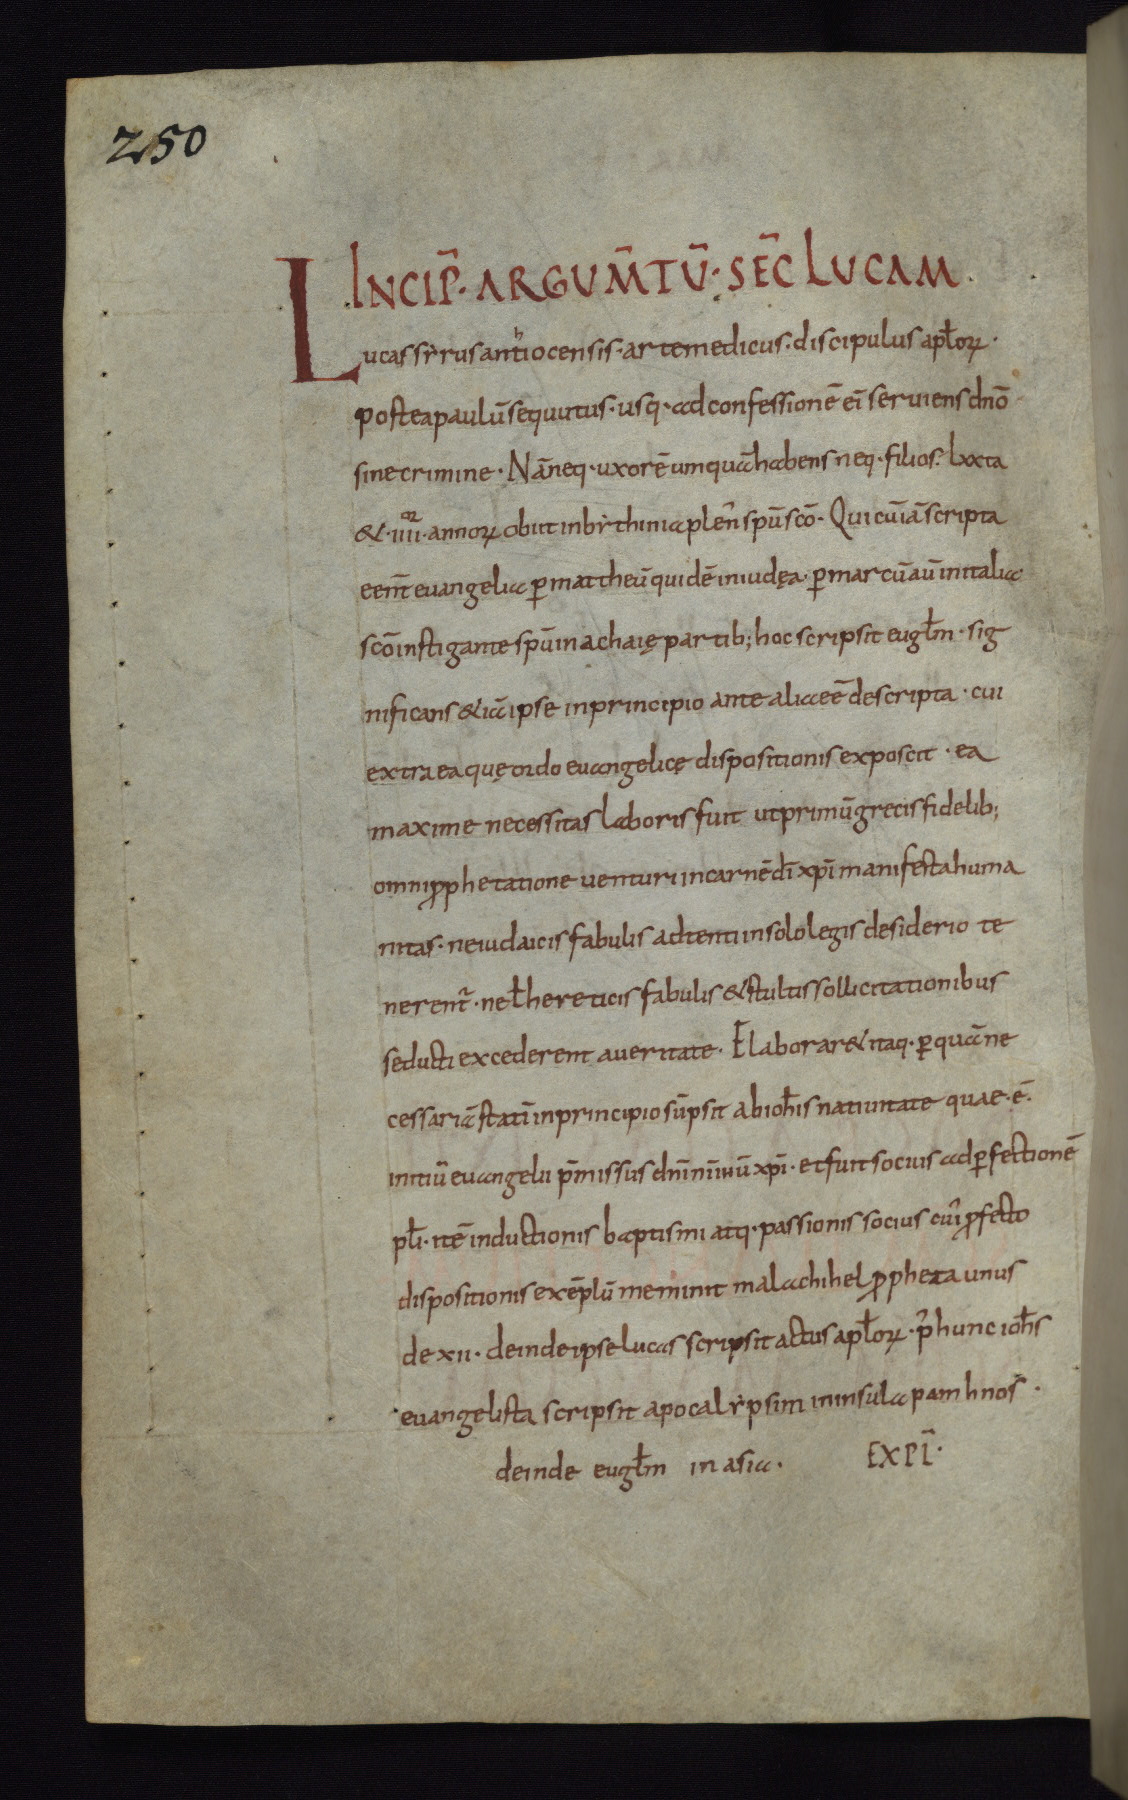 250
INCIP̄. ARGUM̄TŪ. SEC̄ LUCAM
Lucas syrus antiohcensis. arte medicus. discipulus apłorꝝ.
postea paulū sequutus. usq; ad confessionē ei᷒ seruiens dn̄o
sine crimine. Nā neq; uxorē umquā habens neq; filios. lxxta
& .iiiior. annorꝝ obiit in bythinia plen᷒ spū sc̄o. Qui cū iā scripta
eent̄ euangelia ꝑ mattheū quidē in iudęa. ꝑ marcū aū in italia
sc̄o instigante spū in achaię partib; hoc scripsit eugłm. sig
nificans & iā ipse in principio ante alia eē descripta. cui
extra ea quę ordo euangelicę dispositionis exposcit. ea
maxime necessitas laboris fuit ut primū grecis fidelib;
omni ꝓphetatione uenturi in carnē dī xp̄i manifesta huma
nitas. ne iudaicis fabulis adtenti in solo legis desiderio te
nerent᷑. neł hereticis fabulis & stultis sollicitationibus
seducti excederent a ueritate. Elaborar& itaq; ꝑ quā ne
cessariā statī in principio sūpsit ab ioħis natiuitate quae .ē.
initiū euangelii p̄missus dn̄i nr̄i ihū xp̄i. et fuit socius ad ꝑfectionē
płi. itē inductionis baptismi atq; passionis socius cui᷒ ꝓfecto
dispositionis exēplū meminit malachihel ꝓpheta unus
de xii. deinde ipse lucas scripsit actus apłorꝝ. p᷒ hunc ioħs
euangelista scripsit apocalypsim in insula pamhnos.
deinde eugłm in asia. EXPL̄.